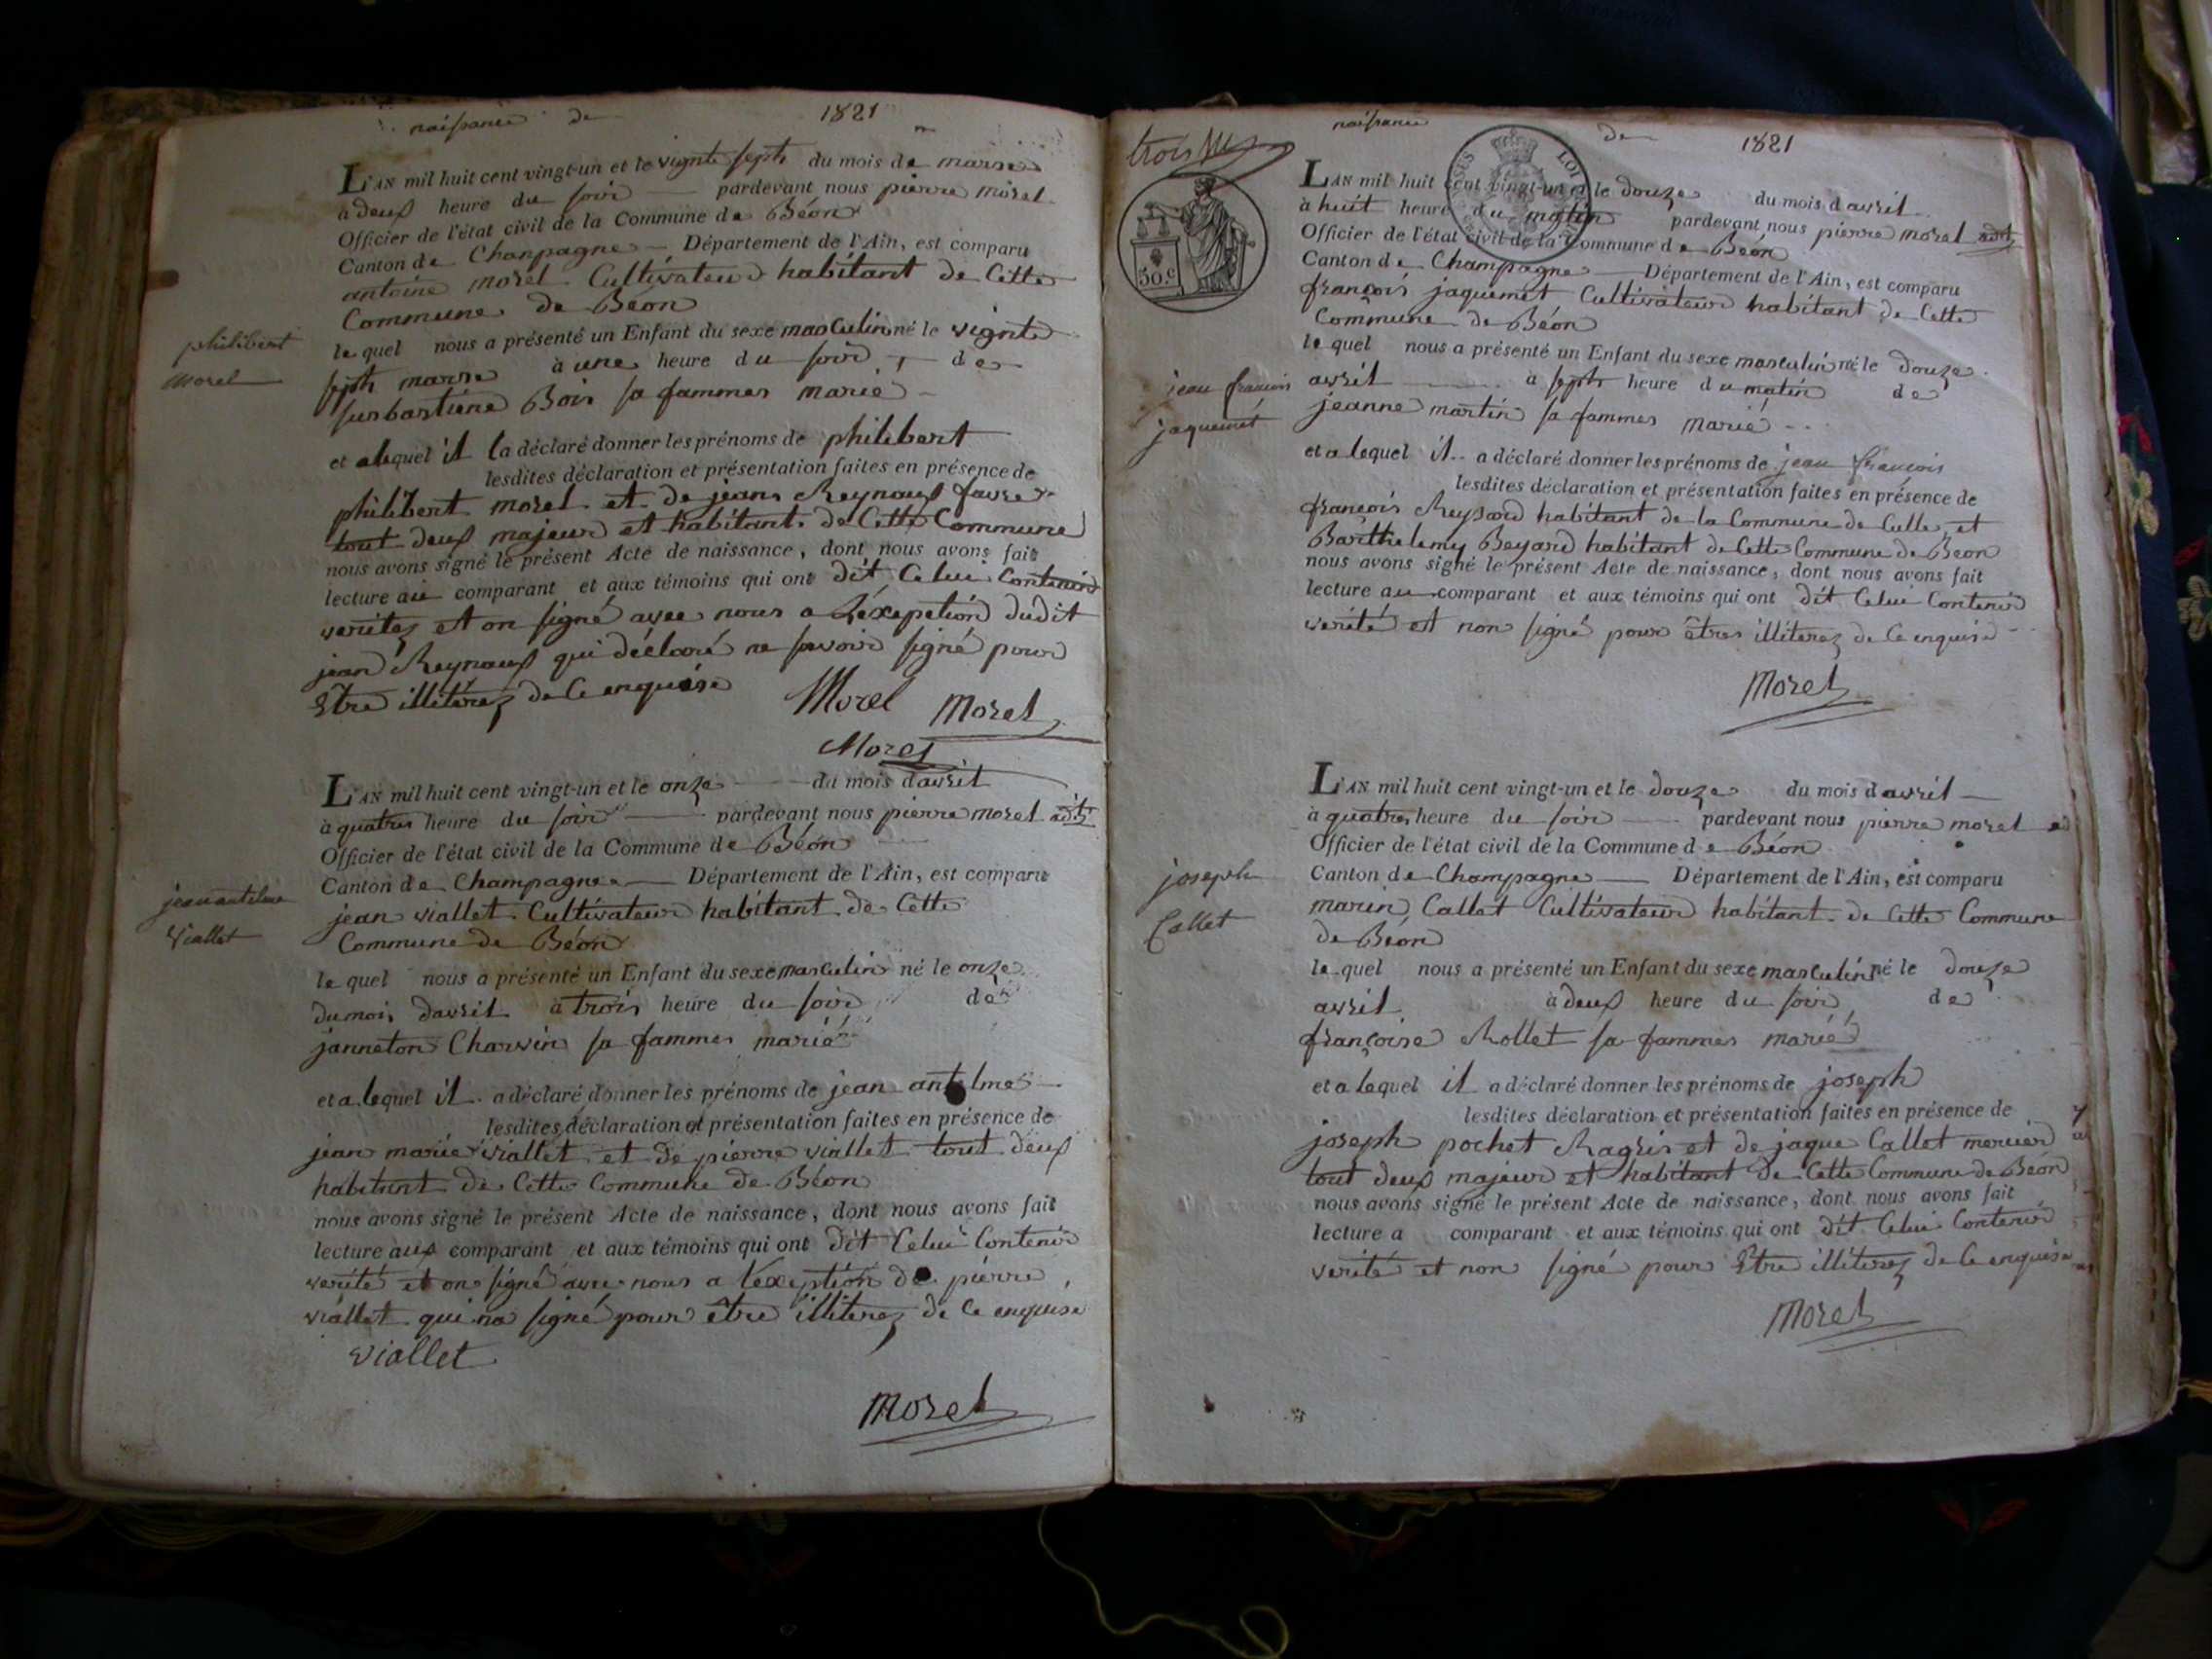 naissance de 1821
L'AN mil huit cent vingt-un et le vignte septs du mois de marse
à deux heure du soir pardevant nous pierre morel
Officier de l'état civil de la Commune de Béon
Canton de Chanpagne Département de l'Ain, est comparu
antoine morel Cultivateur habitant de Cette
Commune de Béon
le quel nous a présenté un Enfant du sexe masculin né le vignte
septs marse à une heure du soir de
susbastiene Bois sa fammes marié
et a lequel il a déclaré donner les prénoms de philibert
lesdites déclaration et présentation faites en présence de
philibert morel et de jean Reynaud favre
tout deux majeur et habitant de Cette Commune
nous avons signé le présent Acte de naissance, dont nous avons fait
lecture au comparant et aux témoins qui ont dit Celui Contenir
veritez et on signé avec nous a Léxeption dudit
jean Reynaud qui déclaré ne savoir signé pour
Etre illiterez de Ce enquise
Morel Morel
Morel
philibert
morel
L'AN mil huit cent vingt-un et le onze du mois davril
à quatres heure du soir pardevant nous pierre morel adjt
Officier de l'état civil de la Commune de Béon
Canton de Champagne Département de l'Ain, est comparu
jean viallet Cultivateur habitant de Cette
Commune de Béon
le quel nous a présenté un Enfant du sexe masculin né le onze
du mois davril à trois heure du soir de
janneton Charvin sa fammes marié
et a lequel il a déclaré donner les prénoms de jean antelme
lesdites déclaration et présentation faites en présence de
jean marie viallet et de pierre viallet tout deux
habitant de Cette Commune de Béon
nous avons signé le présent Acte de naissance, dont nous avons fait
lecture aux comparant et aux témoins qui ont dit Celui Contenir
verité et on signé avec nous a léxeption de pierre
viallet qui na signé pour être illiterez de Ce enquise
viallet
Morel
jean antelme
Viallet
naissance de 1821
trois
50.c
LOI
L'AN mil huit cent vingt-un et le douze du mois davril
à huit heure du matin pardevant nous pierre morel adjt
Officier de l'état civil de la Commune de Béon
Canton de Champagne Département de l'Ain, est comparu
françois jaquemet Cultivateur habitant de Cette
Commune de Béon
le quel nous a présenté un Enfant du sexe masculin né le douze
avril à septs heure du matin de
jeanne martin sa fammes marié
et a lequel il a déclaré donner les prénoms de jean françois
lesdites déclaration et présentation faites en présence de
françois habitant de la Commune de Culle et
Barthelemy Beyard habitant de Cette Commune de Béon
nous avons signé le présent Acte de naissance, dont nous avons fait
lecture au comparant et aux témoins qui ont dit Celui Contenir
verité et non signé pour êtres illiterez de Ce enquise
Morel
jean francois
jaquemet
L'AN mil huit cent vingt-un et le douze du mois davril
à quatres heure du soir pardevant nous pierre morel ad
Officier de l'état civil de la Commune de Béon
Canton de Champagne Département de l'Ain, est comparu
marin Callet Cultivateur habitant de Cette Commune
de Béon
le quel nous a présenté un Enfant du sexe masculin né le douze
avril à deux heure du soir de
françoise Rollet sa fammes marié
et a lequel il a déclaré donner les prénoms de joseph
lesdites déclaration et présentation faites en présence de
joseph pochet et de jaque Callet mercier
tout deux majeur et habitant de Cette Commune de Béon
nous avons signé le présent Acte de naissance, dont nous avons fait
lecture a comparant et aux témoins qui ont dit Celui Contenir
verité et non signé pour Etre illiterez de Ce enquise
Morel
joseph
Callet